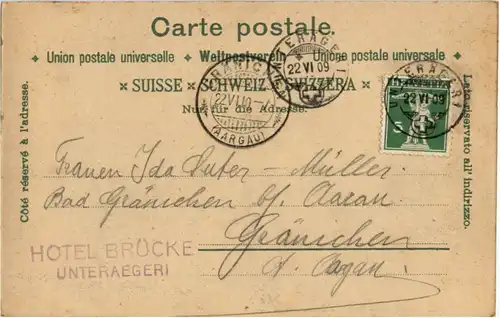 Carte postale.
Union postale universelle Weltpostverein Unione postale universale
SUISSE SCHWEIZ SVIZZERA
Nur für die Adresse.
Côté réservé à l'adresse.
Lato riservato all' indirizzo.
22 VI 09
22 VI 09
(AARGAU)
22 VI 09
5
Frauen Ida Suter - Müller
Bad Gränichen b/ Aarau
Gränichen
HOTEL BRÜCKE
UNTERAEGERI